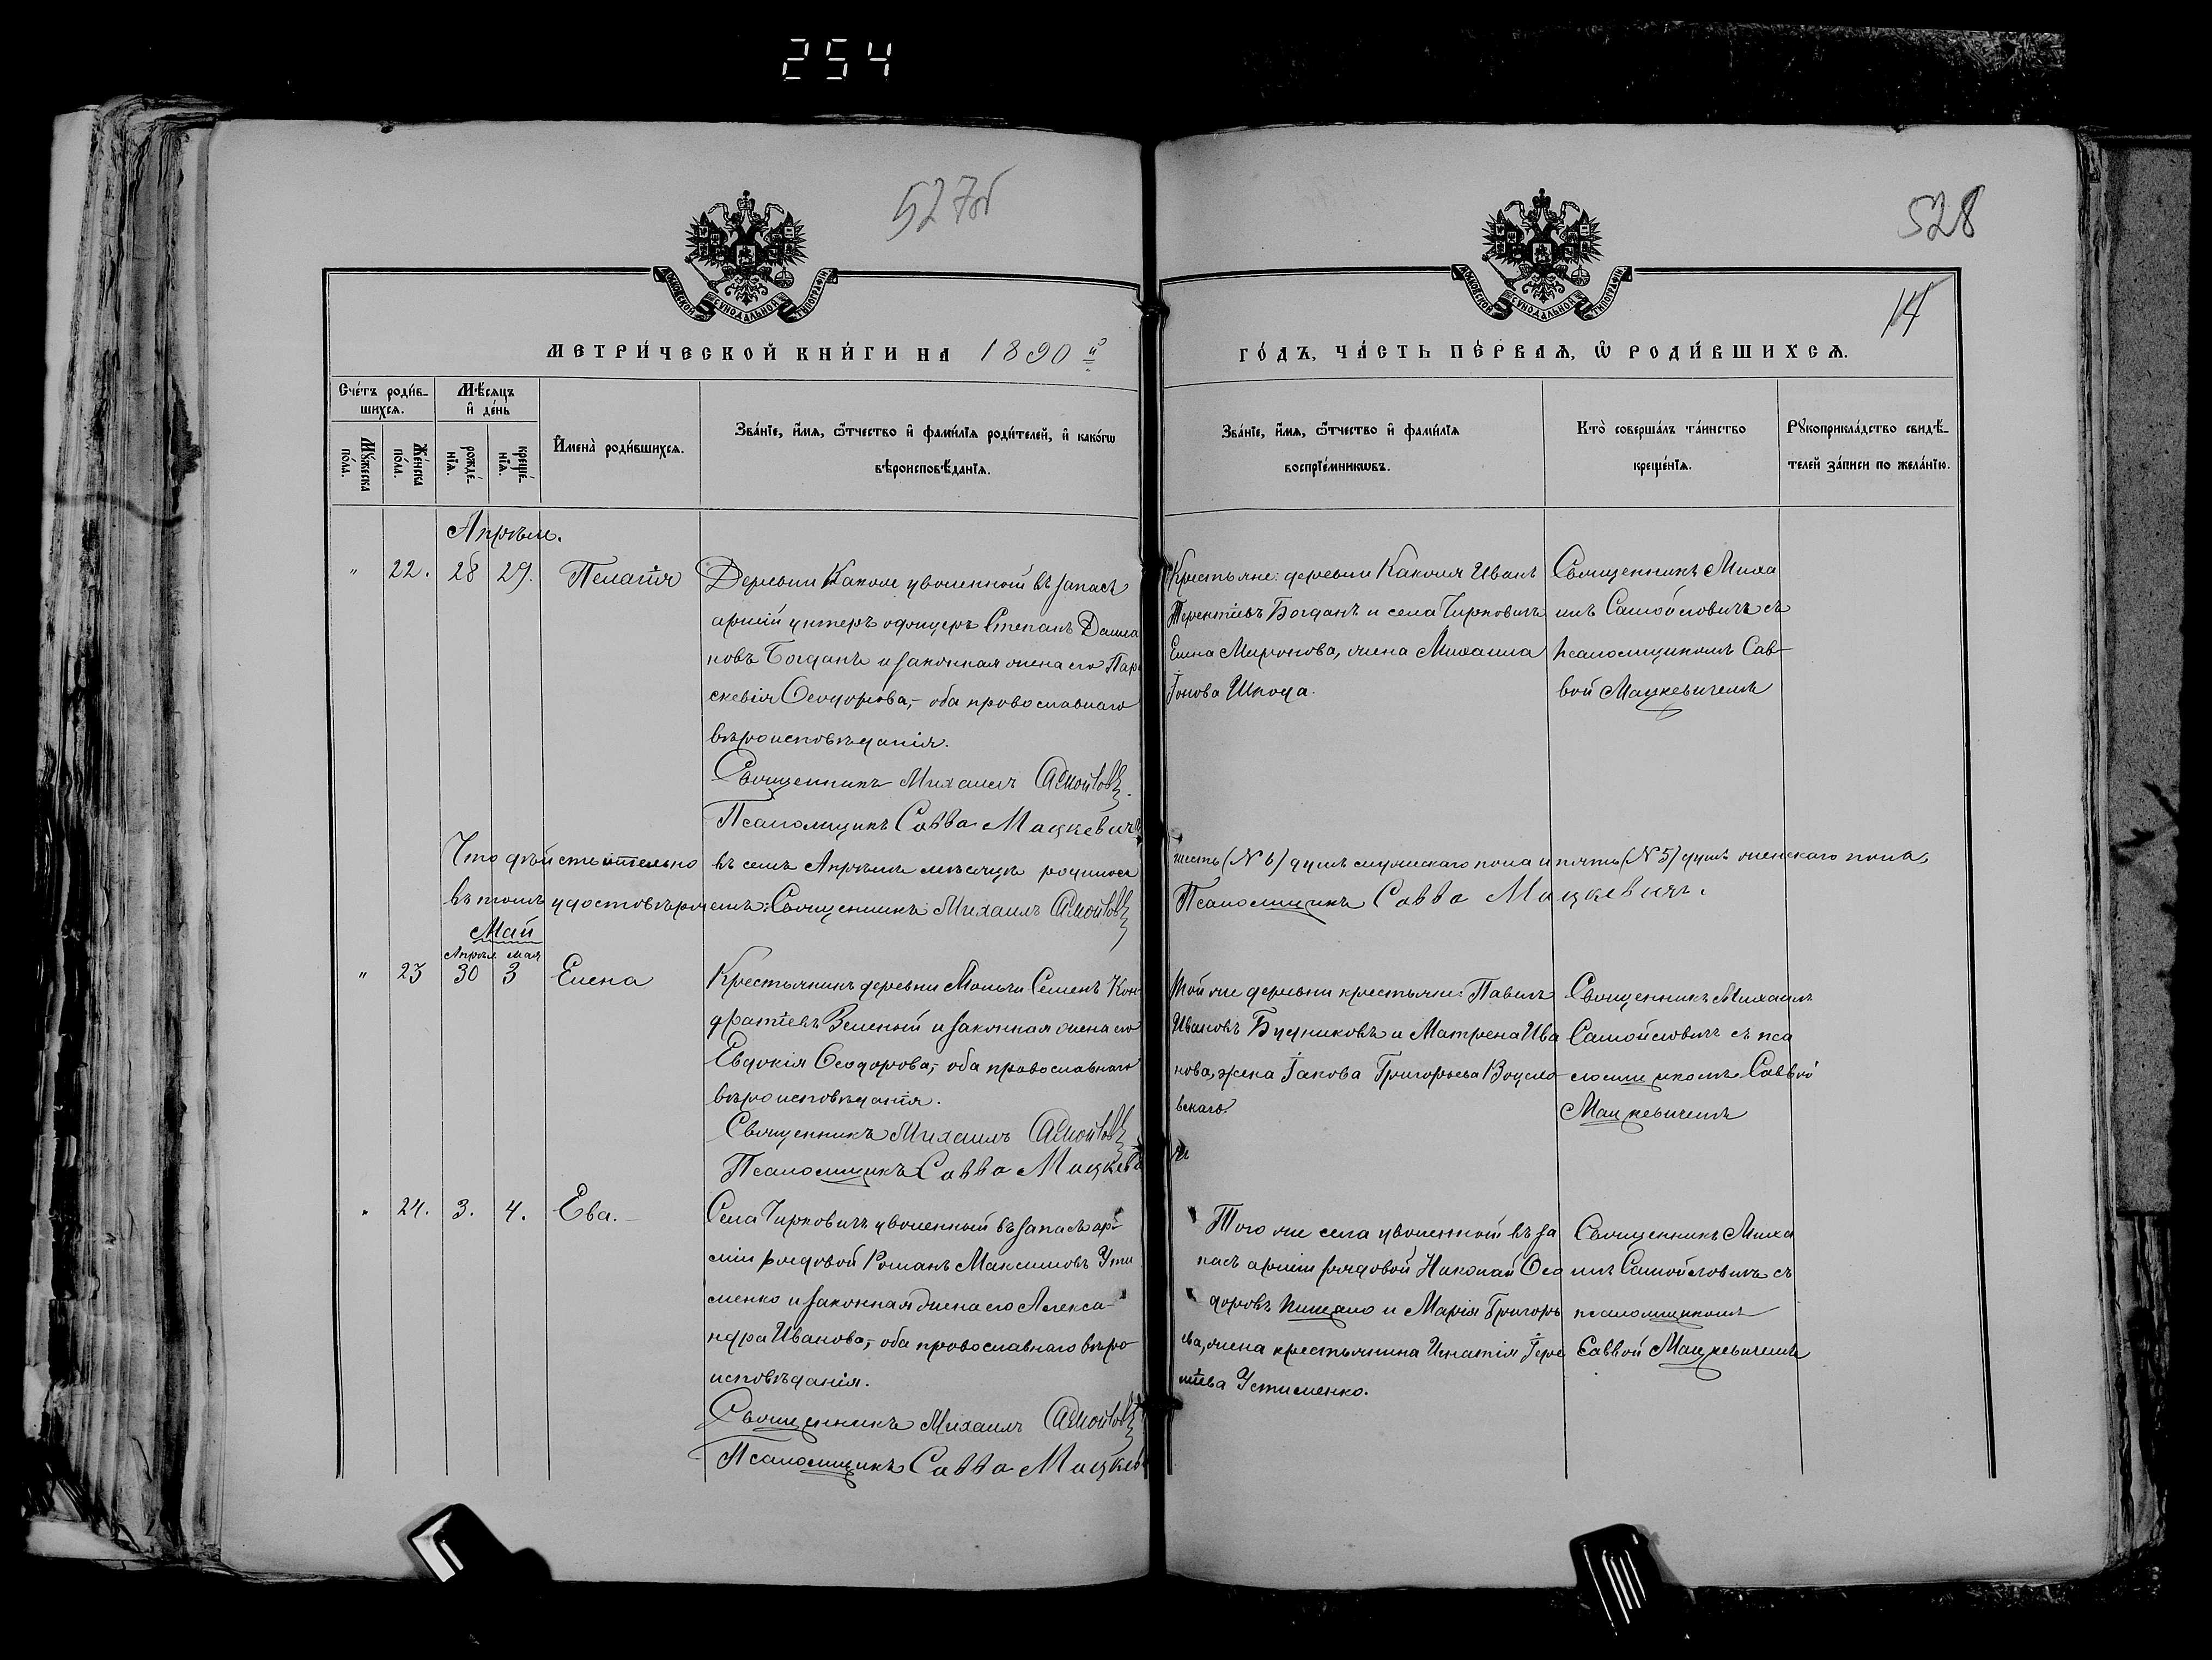 254
527об
528
14
МОСКОВСКОЙ СѴНОДАЛЬНОЙ ТИПОГРАФІИ
МОСКОВСКОЙ СѴНОДАЛЬНОЙ ТИПОГРАФІИ
МЕТРИ́ЧЕСКОЙ КНИ́ГИ НА 1890 й
ГО́ДЪ, ЧА́СТЬ ПЕ́РВАѦ, Ѡ҆ РОДИ́ВШИХСѦ.
Сче́тъ роди́в-
шихсѧ.
Мѣ́сѧцъ
и҆ де́нь
Мꙋ́жеска
по́ла.
Же́нска
по́ла.
рожде́-
нїѧ.
креще́-
нїѧ.
И҆мена̀ роди́вшихсѧ.
Зва́нїе, и҆́мѧ, ѻ҆́тчество и҆ фами́лїѧ роди́телей, и҆ како́гѡ
вѣроисповѣ́данїѧ.
Зва́нїе, и҆́мѧ, ѻ҆́тчество и҆ фами́лїѧ
воспрїе́мникѡвъ.
Кто̀ соверша́лъ та́инство
креще́нїѧ.
Рꙋкоприкла́дство свидѣ́-
телей за́писи по жела́нїю.
Апрѣль.
" 22. 28 29. Пелагія
Деревни Каколя уволенный въ запасъ
арміи унтеръ офицеръ Степанъ Дамиа
новъ Богданъ и законная жена его Пара
скевія Ѳеодорова, - оба православнаго
вѣроисповѣданія.
Священникъ Михаилъ Самойлов
Псаломщикъ Савва Мацкевичъ
Крестьяне: деревни Каколя Иванъ
Терентіевъ Богданъ и села Чирковичъ
Елена Миронова, жена Михаила
Іонова Шкода.
Священникъ Миха
илъ Самойловичъ съ
псаломщикомъ Сав-
вой Мацкевичемъ
Что дѣйствительно въ семъ Апрѣлѣ мѣсяцѣ родилось
шесть (№ 6) душъ мужскаго пола и пять (№ 5) душъ женскаго пола,
въ томъ удостовѣряемъ: Священникъ Михаилъ Самойлов
Псаломщикъ Савва Мацкевичъ.
Май
Апрѣл мая
" 23 30 3 Елена
Крестьянинъ деревни Мольчи Семенъ Кон-
дратіевъ Зеленый и законная жена его
Евдокія Ѳеодорова, - оба православнаго
вѣроисповѣданія.
Священникъ Михаилъ Самойлов
Псаломщикъ Савва Мацкеви
чъ
Той же деревни крестьяне: Павелъ
Ивановъ Будниковъ и Матрона Ива
нова, жена Іакова Григорьева
вскаго.
Священникъ Михаилъ
Самойловичъ съ пса
ломщикомъ Саввой
Мацкевичемъ
" 24. 3. 4. Ева.
Села Чирковичъ уволенный въ запасъ ар-
міи рядовой Романъ Максимовъ Усти
менко и законная жена его Алекса-
ндра Иванова, - оба православнаго вѣро-
исповѣданія.
Священникъ Михаилъ Самойлов
Псаломщикъ Савва Мацкев
Того же села уволенный въ за
пасъ арміи рядовой Николай Ѳео
доровъ Пищало и Марія Григорь
ева, жена крестьянина Игнатія Іере
міева Устименко.
Священникъ Миха
илъ Самойловичъ съ
псаломщикомъ
Саввой Мацкевичемъ